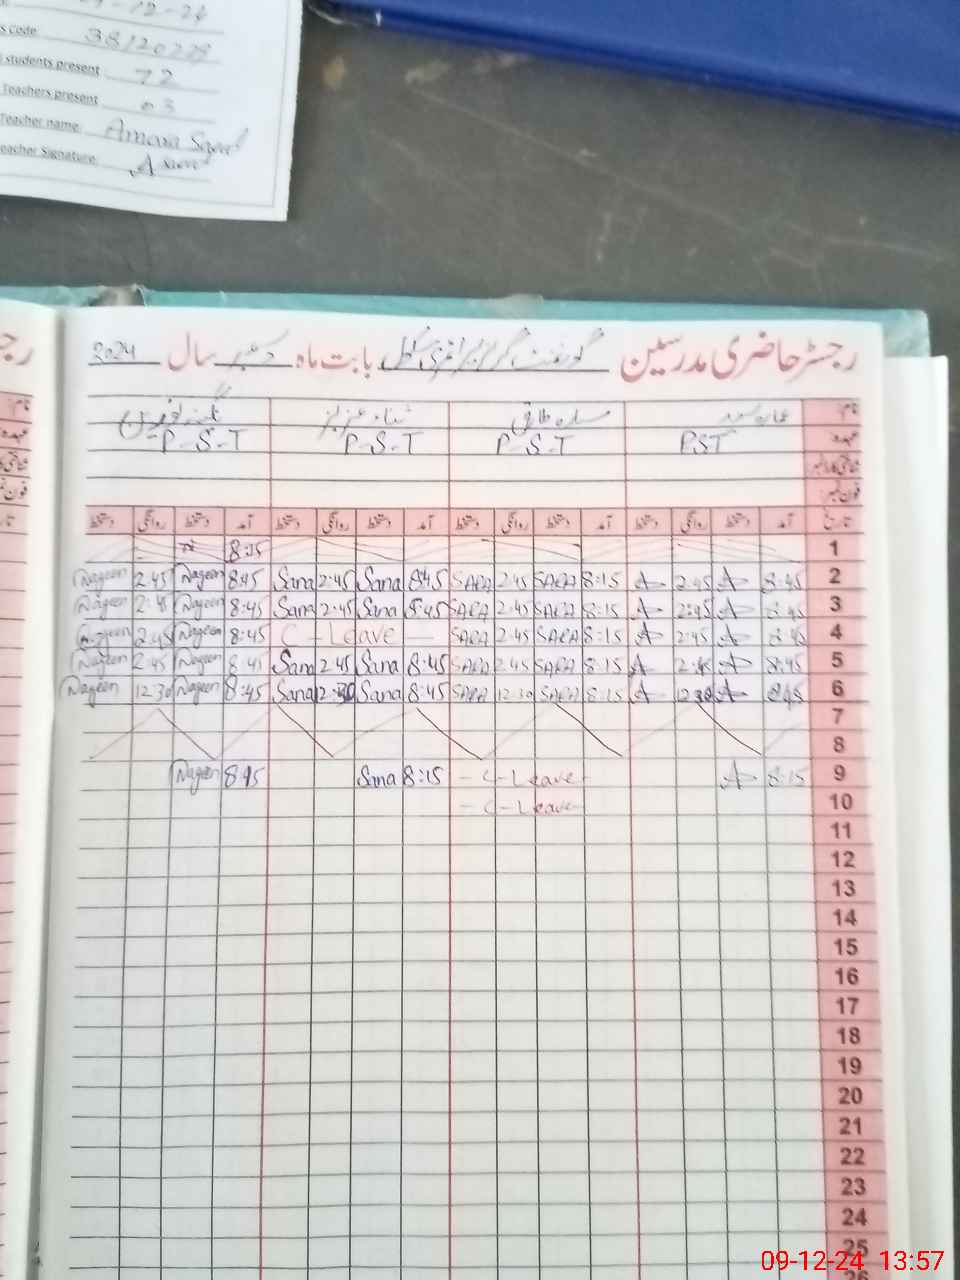 -12-24
s Code: 38120228
l students present 72
Teachers present 03
Teacher name: Amara Saeed
eacher Signature: A Saeed
رجسٹر حاضری مدرسین گورنمنٹ گرلز پرائمری سکول بابت ماہ دسمبر سال 2024
نام:
عہدہ: PST P-S-T P-S-T P-S-T
شناختی کارڈ نمبر
فون نمبر:
تاریخ آمد دستخط روانگی دستخط آمد دستخط روانگی دستخط آمد دستخط روانگی دستخط آمد دستخط روانگی دستخط
8:15 1
Nageen 2:45 Nageen 8:45 Sana 2:45 Sana 8:45 SARA 2:45 SARA 8:15 A 2:45 A 8:45 2
Nageen 2:45 Nageen 8:45 Sana 2:45 Sana 8:45 SARA 2:45 SARA 8:15 A 2:45 A 8:45 3
Nageen 2:45 Nageen 8:45 C - Leave - SARA 2:45 SARA 8:15 A 2:45 A 8:45 4
Nageen 2:45 Nageen 8:45 Sana 2:45 Sana 8:45 SARA 2:45 SARA 8:15 A 2:45 A 8:45 5
Nageen 12:30 Nageen 8:45 Sana 12:30 Sana 8:45 SARA 12:30 SARA 8:15 A 12:30 A 8:45 6
7
8
Nageen 8:45 Sana 8:15 - C - Leave - A 8:15 9
- C - Leave - 10
11
12
13
14
15
16
17
18
19
20
21
22
23
24
25
26
09-12-24 13:57